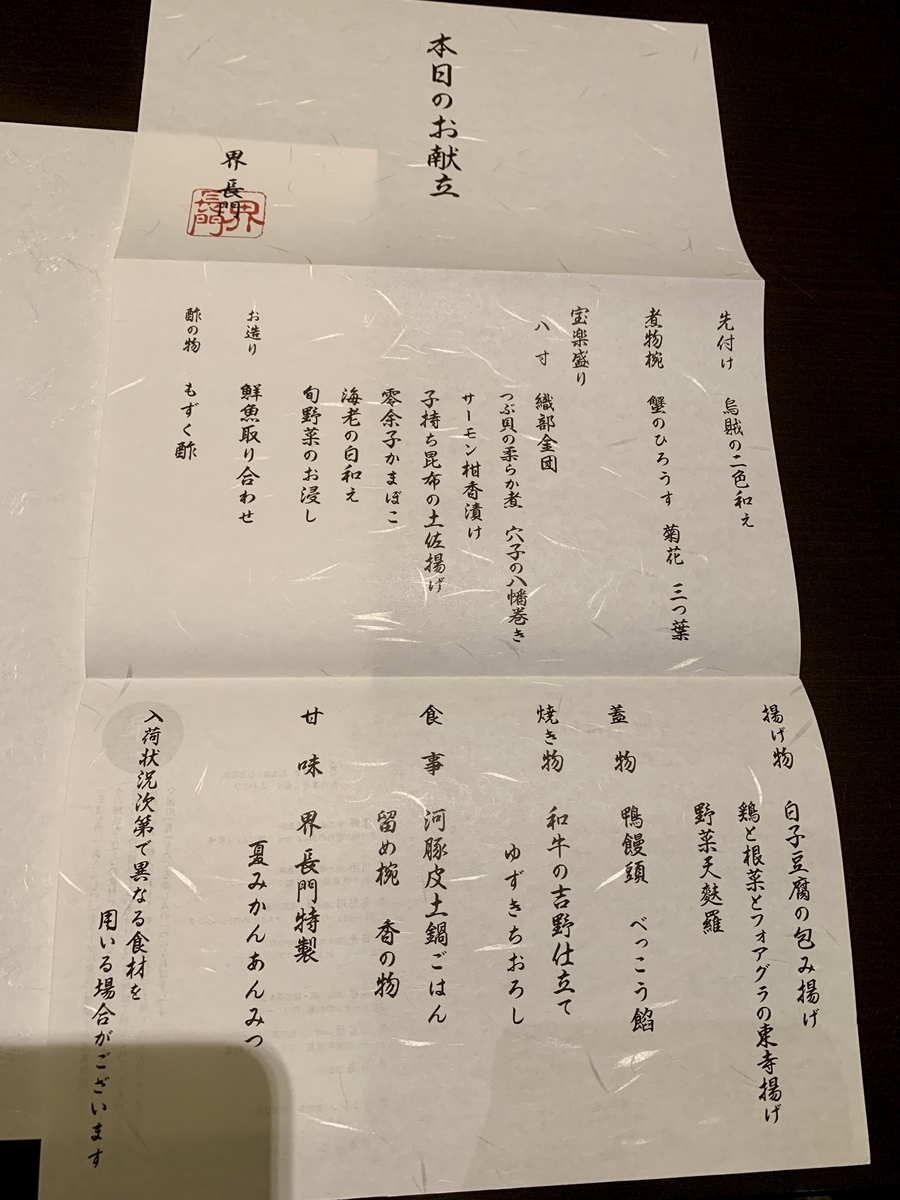 本日のお献立
界 長門
界長門
先付け 烏賊の二色和え
煮物椀 蟹のひろうす 菊花 三つ葉
宝楽盛り
八寸 織部金団
つぶ貝の柔らか煮 穴子の八幡巻き
サーモン柑香漬け
子持ち昆布の土佐揚げ
零余子かまぼこ
海老の白和え
旬野菜のお浸し
お造り 鮮魚取り合わせ
酢の物 もずく酢
揚げ物 白子豆腐の包み揚げ
鶏と根菜とフォアグラの東寺揚げ
野菜天麩羅
蓋物 鴨饅頭 べっこう餡
焼き物 和牛の吉野仕立て
ゆずきちおろし
食事 河豚皮土鍋ごはん
留め椀 香の物
甘味 界 長門特製
夏みかんあんみつ
入荷状況次第で異なる食材を
用いる場合がございます